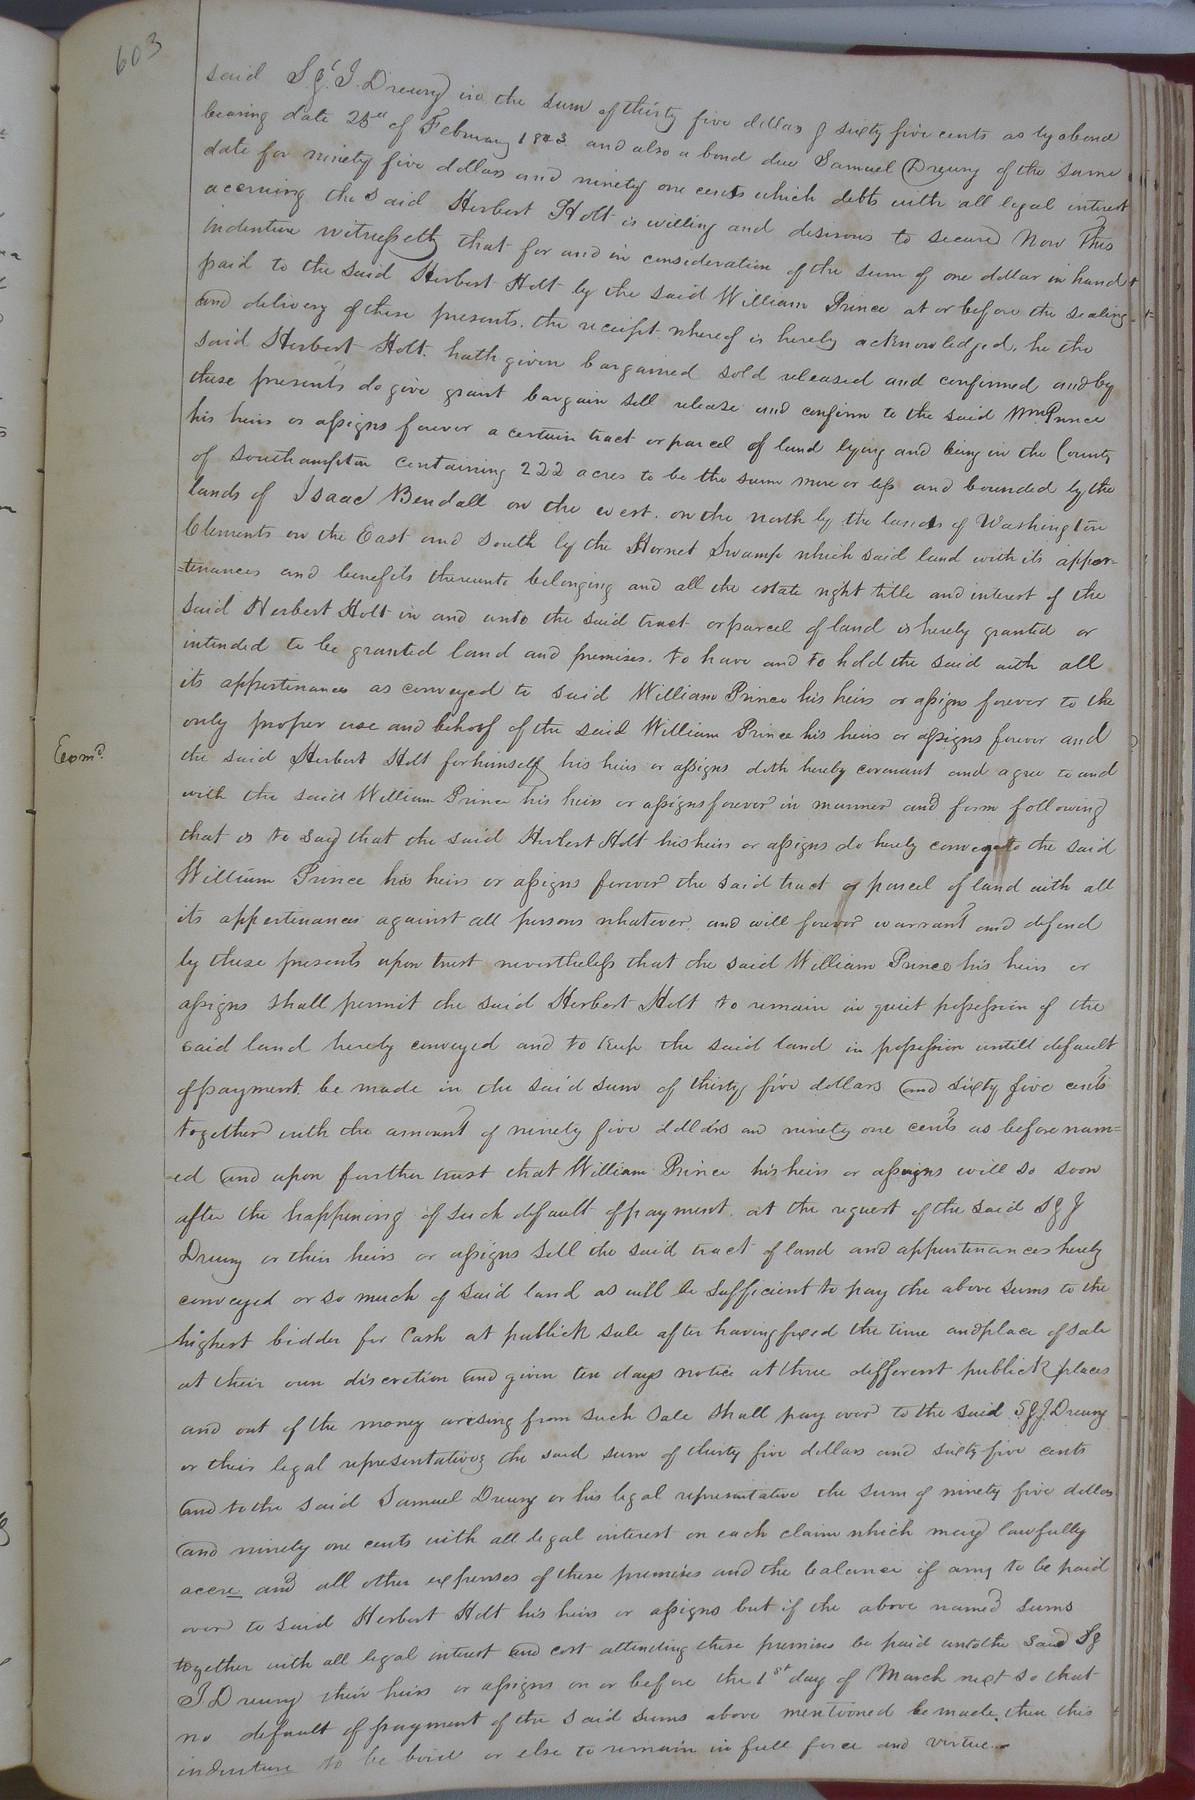 603
said S & J. Drewry in the sum of thirty five dollars & sixty five cents as by a bond
bearing date 25th of February 1843 and also a bond due Samuel Drewry of the same
date for ninety five dollars and ninety one cents which debts with all legal interest
accruing the said Herbert Holt is willing and desirous to secure Now This
indenture witnesseth that for and in consideration of the sum of one dollar in hand
paid to the said Herbert Holt by the said William Prince at or before the sealing
and delivery of these presents. the receipt whereof is hereby acknowledged. he the
said Herbert Holt. hath given bargained sold released and confirmed and by
these presents do give grant bargain sell release and confirm to the said Wm Prince
his heirs or assigns forever a certain tract or parcel of land lying and being in the County
of Southampton containing 222 acres to be the same more or less and bounded by the
lands of Isaac Bendall on the west. on the north by the lands of Washington
Clements on the East and South by the Hornet Swamp which said land with its appor=
=tenances and benefits thereunto belonging and all the estate right title and interest of the
said Herbert Holt in and unto the said tract or parcel of land is hereby granted or
intended to be granted land and premises. to have and to hold the said with all
its appertinances as conveyed to said William Prince his heirs or assigns forever to the
only proper use and behoof of the said William Prince his heirs or assigns forever and
Exmd.
the said Herbert Holt for himself his heirs or assigns doth hereby covenant and agree to and
with the said William Prince his heirs or assigns forever in manner and form following
that is to say that the said Herbert Holt his heirs or assigns do hereby convey to the said
William Prince his heirs or assigns forever the said tract or parcel of land with all
its appertinances against all persons whatever. and will forever warrant and defend
by these presents upon trust nevertheless that the said William Prince his heirs or
assigns shall permit the said Herbert Holt to remain in quiet possession of the
said land hereby conveyed and to keep the said land in possession untill default
of payment be made in the said sum of thirty five dollars and sixty five cents
together with the amount of ninety five dollars an ninety one cents as before nam=
=ed and upon further trust that William Prince his heirs or assigns will so soon
after the happening of such default of payment. at the request of the said S & J
Drewry or their heirs or assigns sell the said tract of land and appurtenances hereby
conveyed or so much of said land as will be sufficient to pay the above sums to the
highest bidder for Cash at publick sale after having fixed the time and place of sale
at their own discretion and given ten days notice at three different publick places
and out of the money arising from such sale shall pay over to the said S & J. Drewry
or their legal representatives the said sum of thirty five dollars and sixty five cents
and to the said Samuel Drewry or his legal representative the sum of ninety five dollars
and ninety one cents with all legal interest on each claim which may lawfully
accre and all other expenses of these premises and the balance if any to be paid
over to said Herbert Holt his heirs or assigns but if the above named sums
together with all legal interest and cost attending these premises be paid unto the said S &
J Drewry their heirs or assigns on or before the 1st day of March next so that
no default of payment of the said sums above mentioned be made. then this
indenture to be void or else to remain in full force and virtue.